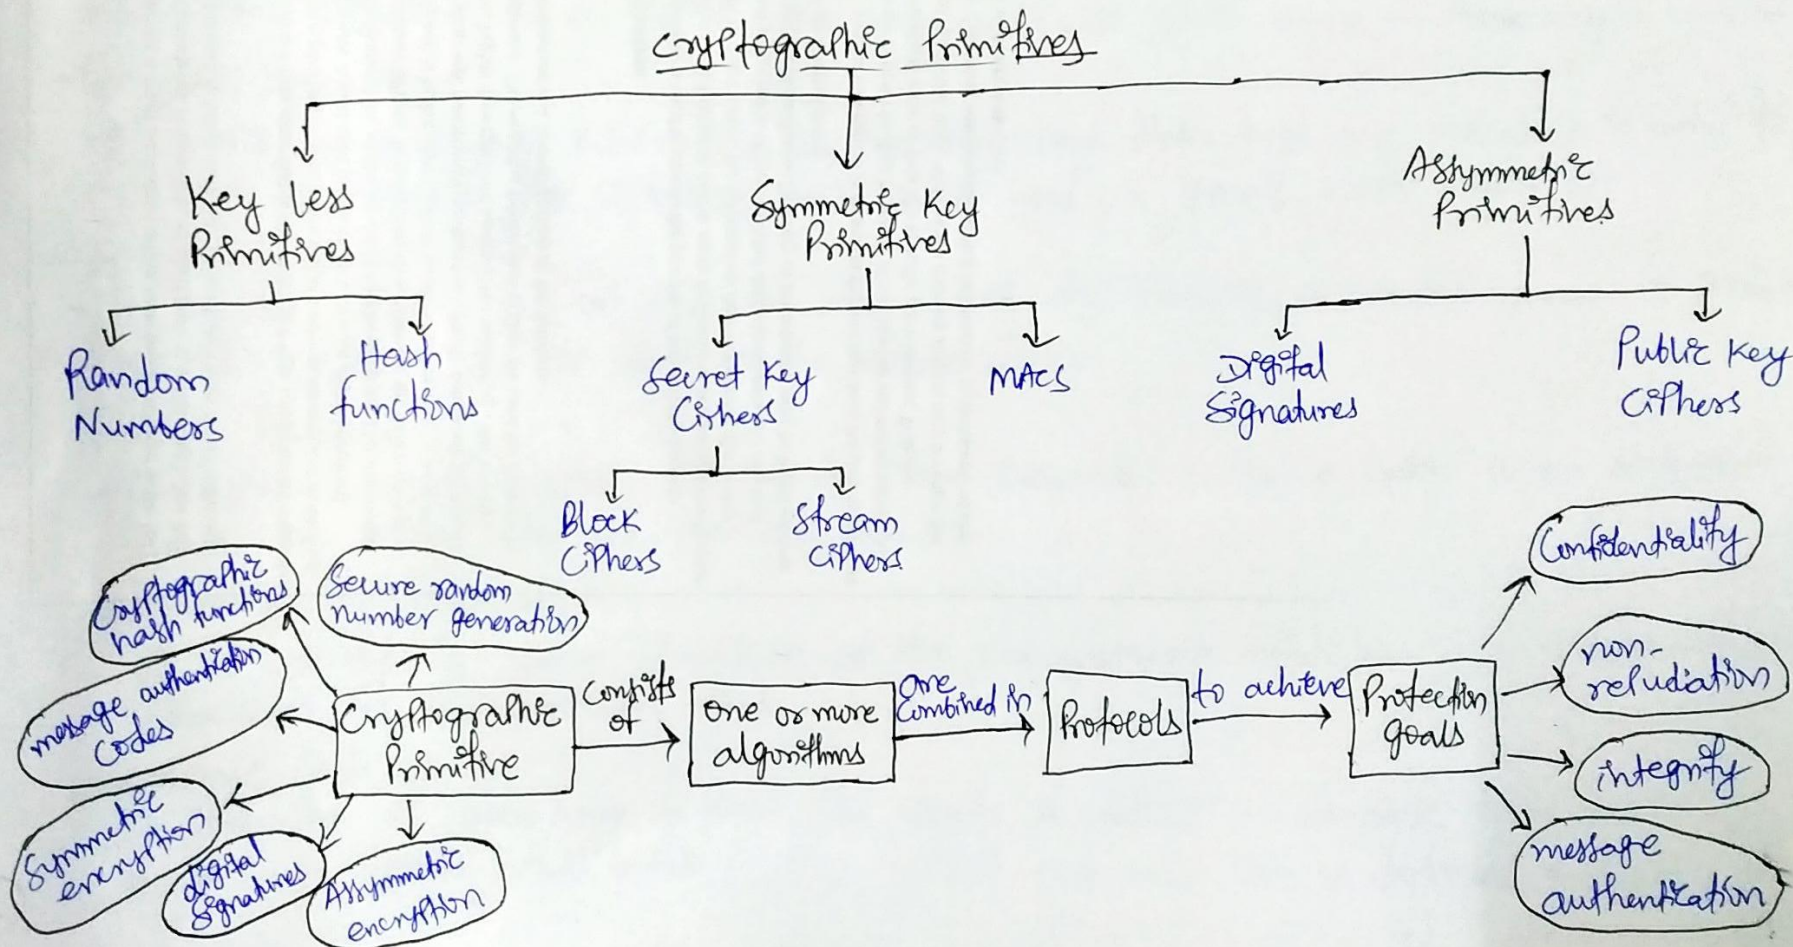 Cryptographic Primitives
Key less
Primitives
Symmetric Key
Primitives
Assymmetric
Primitives
Random
Numbers
Hash
functions
Secret Key
Ciphers
MACS
Digital
Signatures
Public Key
Ciphers
Block
Ciphers
Stream
Ciphers
Cryptographic
hash functions
Secure random
number generation
message authentication
codes
Symmetric
encryption
digital
signatures
Assymmetric
encryption
Cryptographic
Primitive
Consists
of
one or more
algorithms
are
combined in
Protocols
to achieve
Protection
goals
Confidentiality
non-
repudiation
integrity
message
authentication